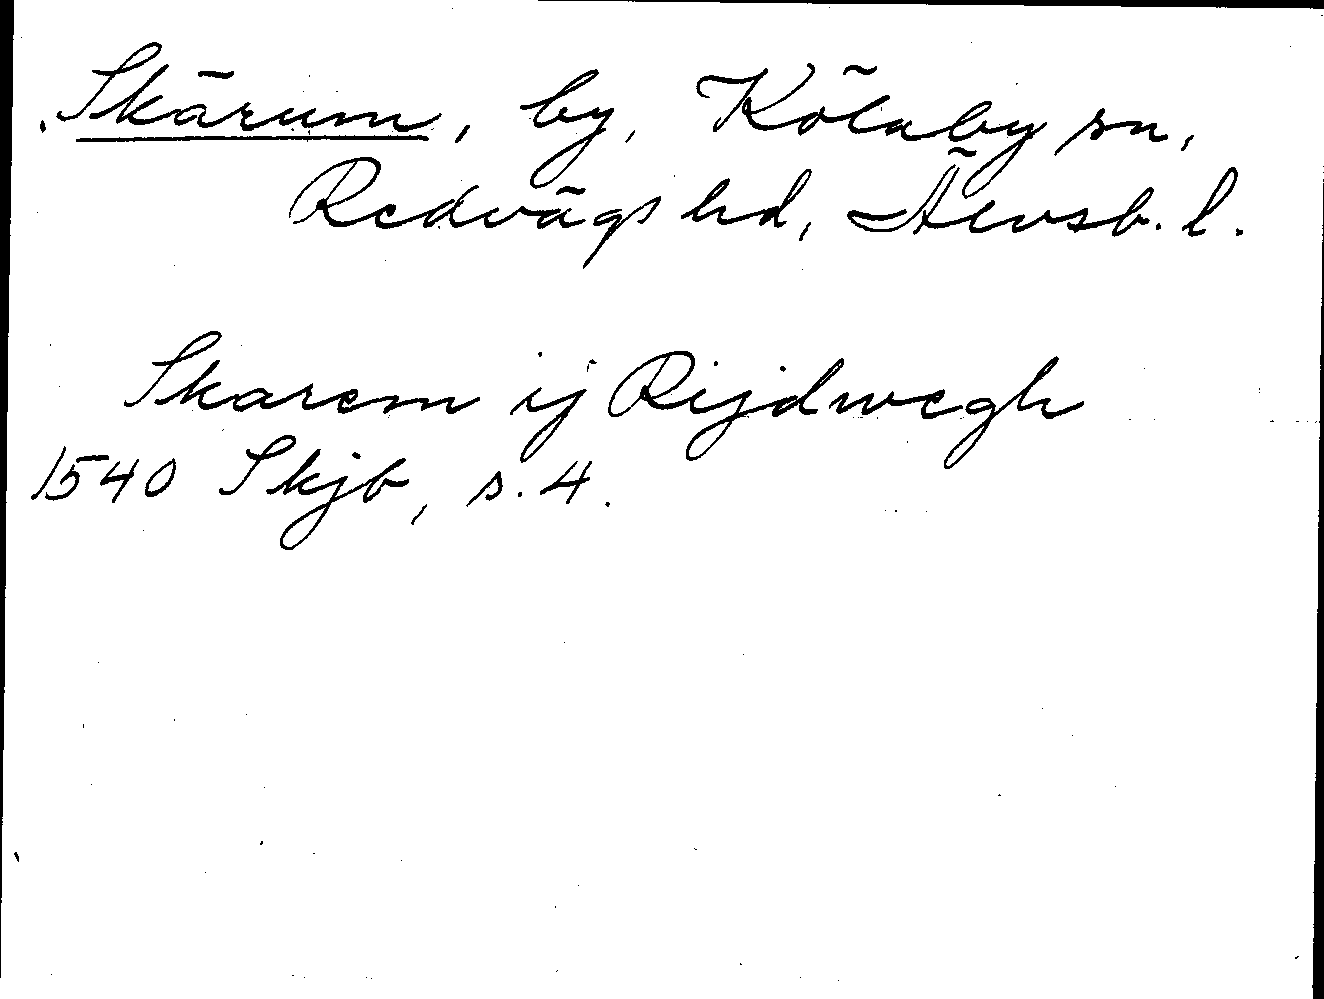 Skärum, by, Kölaby sn,
Redvägs hd, Älvsb. l.
Skarem ij Rijdwegh
1540 Skjb, s. 4.